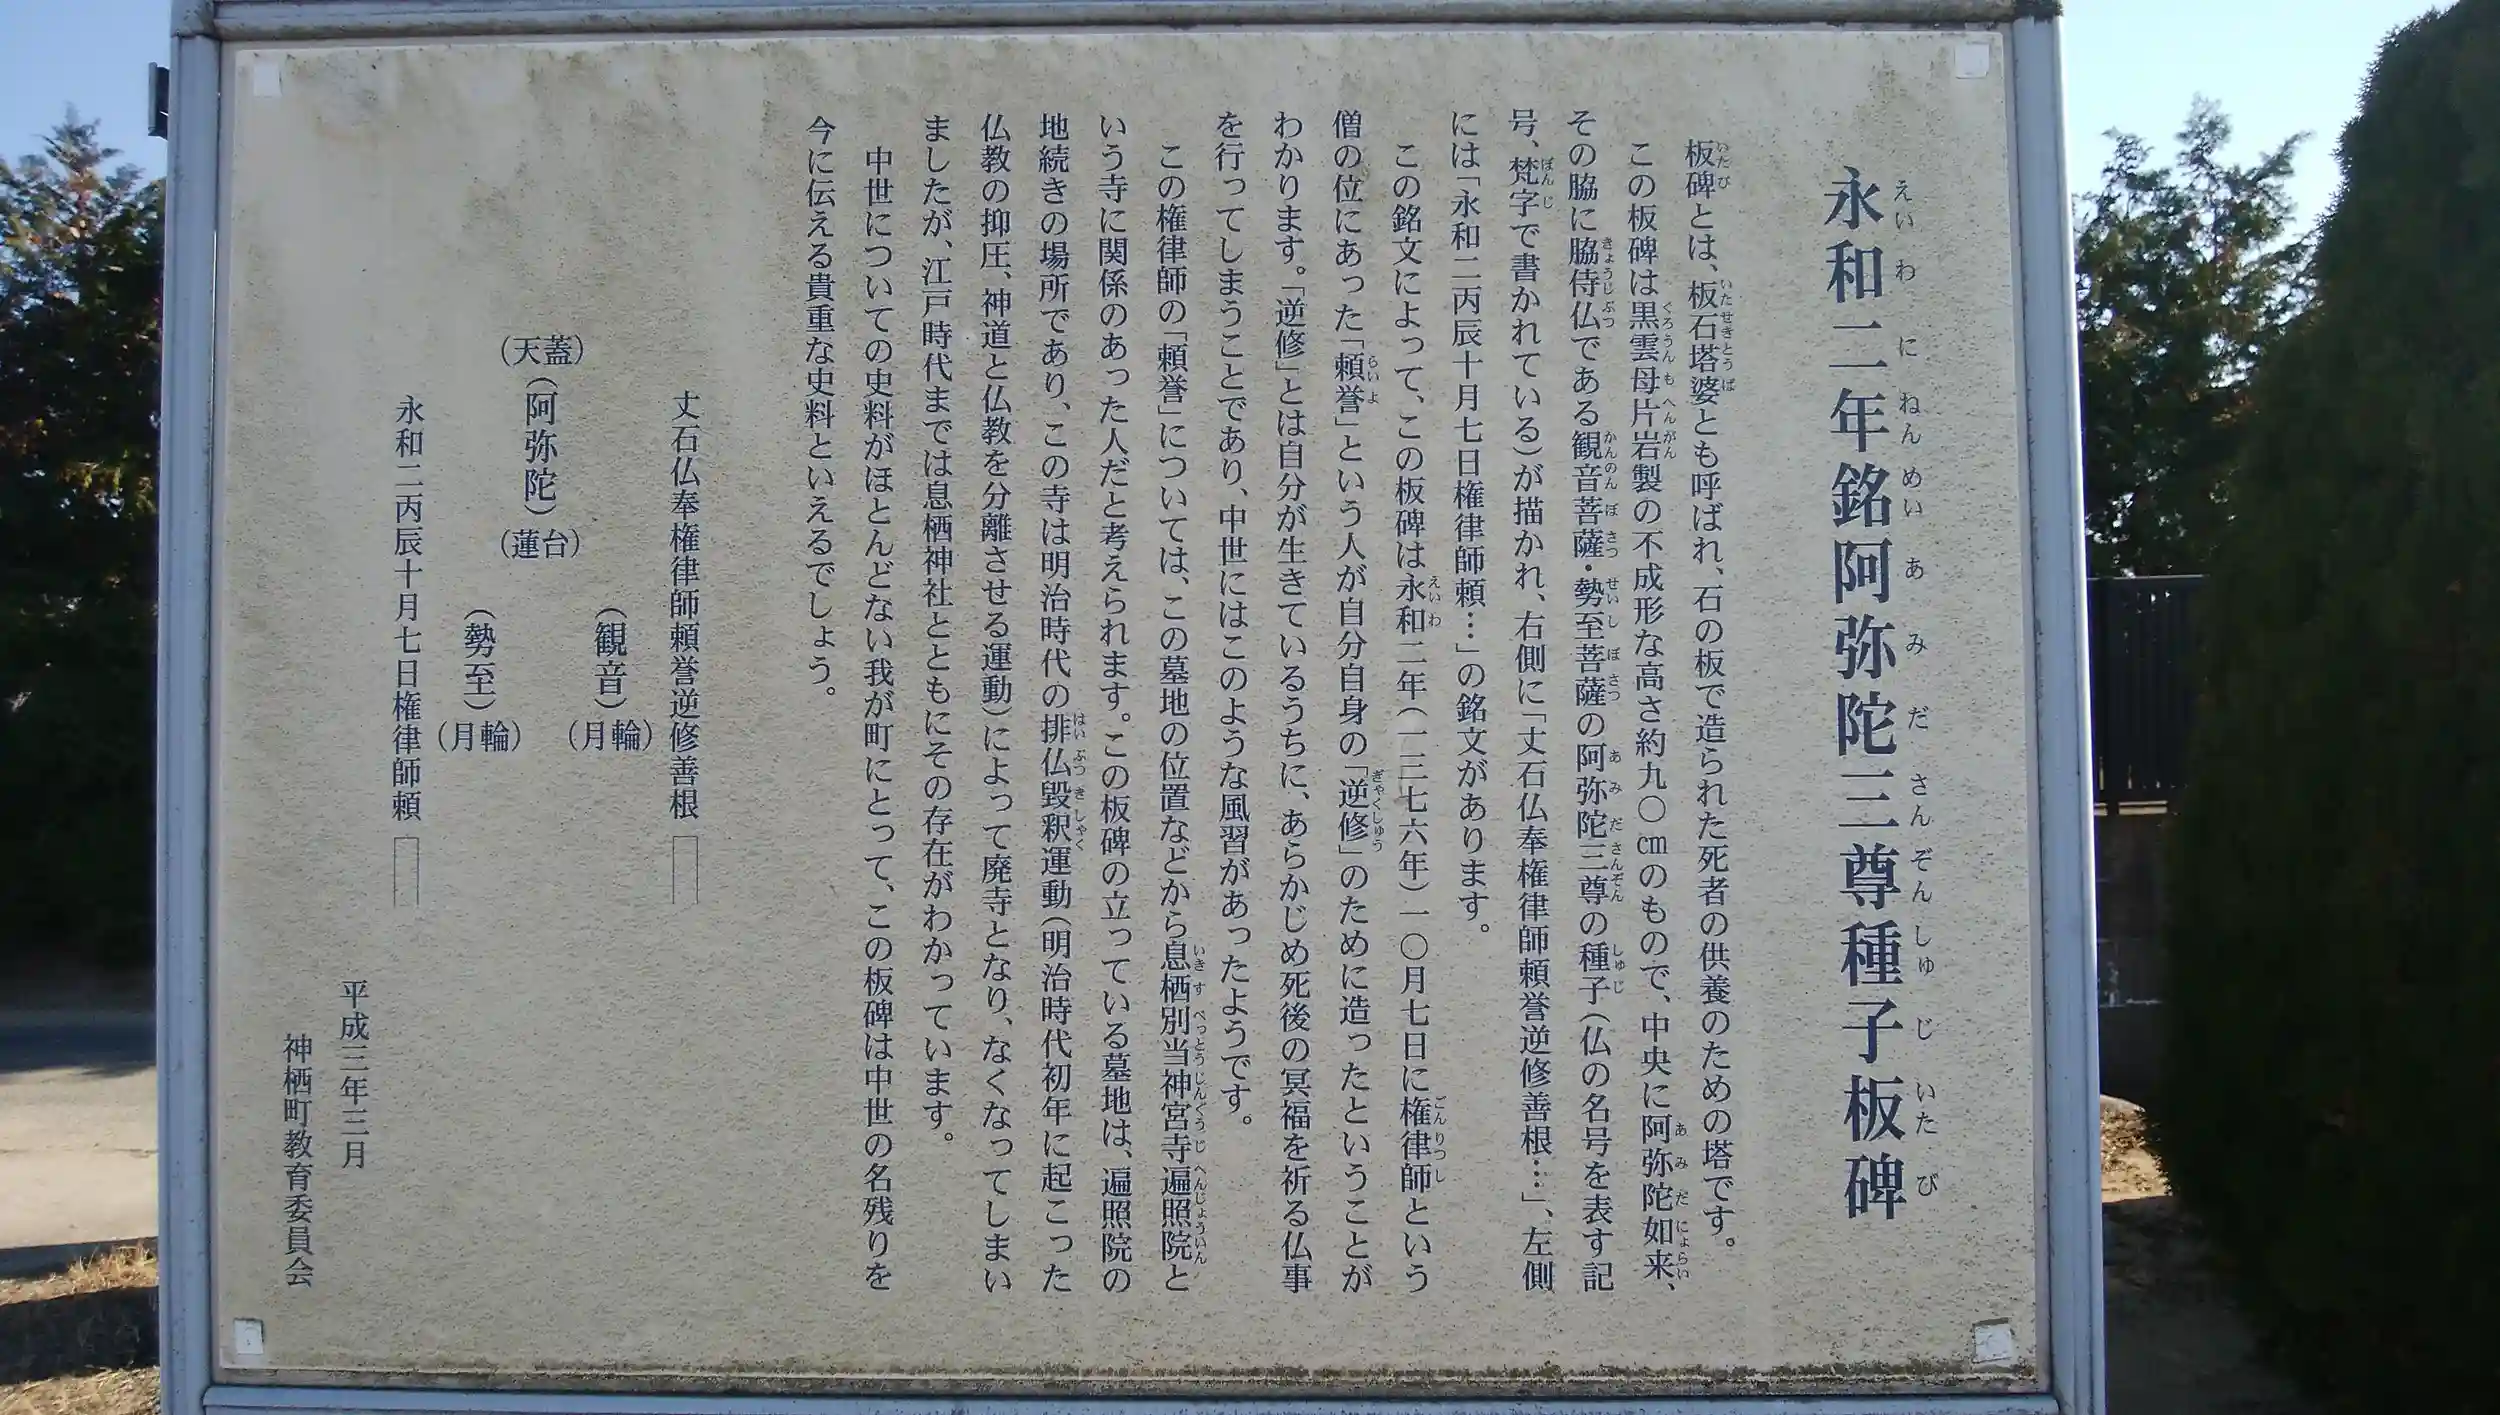 永和二年銘阿弥陀三尊種子板碑
えいわにねんめいあみださんぞんしゅじいたび
板碑とは、板石塔婆とも呼ばれ、石の板で造られた死者の供養のための塔です。
この板碑は黒雲母片岩製の不成形な高さ約九〇㎝のもので、中央に阿弥陀如来、
その脇に脇侍仏である観音菩薩・勢至菩薩の阿弥陀三尊の種子（仏の名号を表す記
号、梵字で書かれている）が描かれ、右側に「丈石仏奉権律師頼誉逆修善根…」、左側
には「永和二丙辰十月七日権律師頼…」の銘文があります。
この銘文によって、この板碑は永和二年（一三七六年）一〇月七日に権律師という
僧の位にあった「頼誉」という人が自分自身の「逆修」のために造ったということが
わかります。「逆修」とは自分が生きているうちに、あらかじめ死後の冥福を祈る仏事
を行ってしまうことであり、中世にはこのような風習があったようです。
この権律師の「頼誉」については、この墓地の位置などから息栖別当神宮寺遍照院と
いう寺に関係のあった人だと考えられます。この板碑の立っている墓地は、遍照院の
地続きの場所であり、この寺は明治時代の排仏毀釈運動（明治時代初年に起こった
仏教の抑圧、神道と仏教を分離させる運動）によって廃寺となり、なくなってしまい
ましたが、江戸時代までは息栖神社とともにその存在がわかっています。
中世についての史料がほとんどない我が町にとって、この板碑は中世の名残りを
今に伝える貴重な史料といえるでしょう。
丈石仏奉権律師頼誉逆修善根
（観音）（月輪）
（天蓋）（阿弥陀）（蓮台）
（勢至）（月輪）
永和二丙辰十月七日権律師頼
平成三年三月
神栖町教育委員会